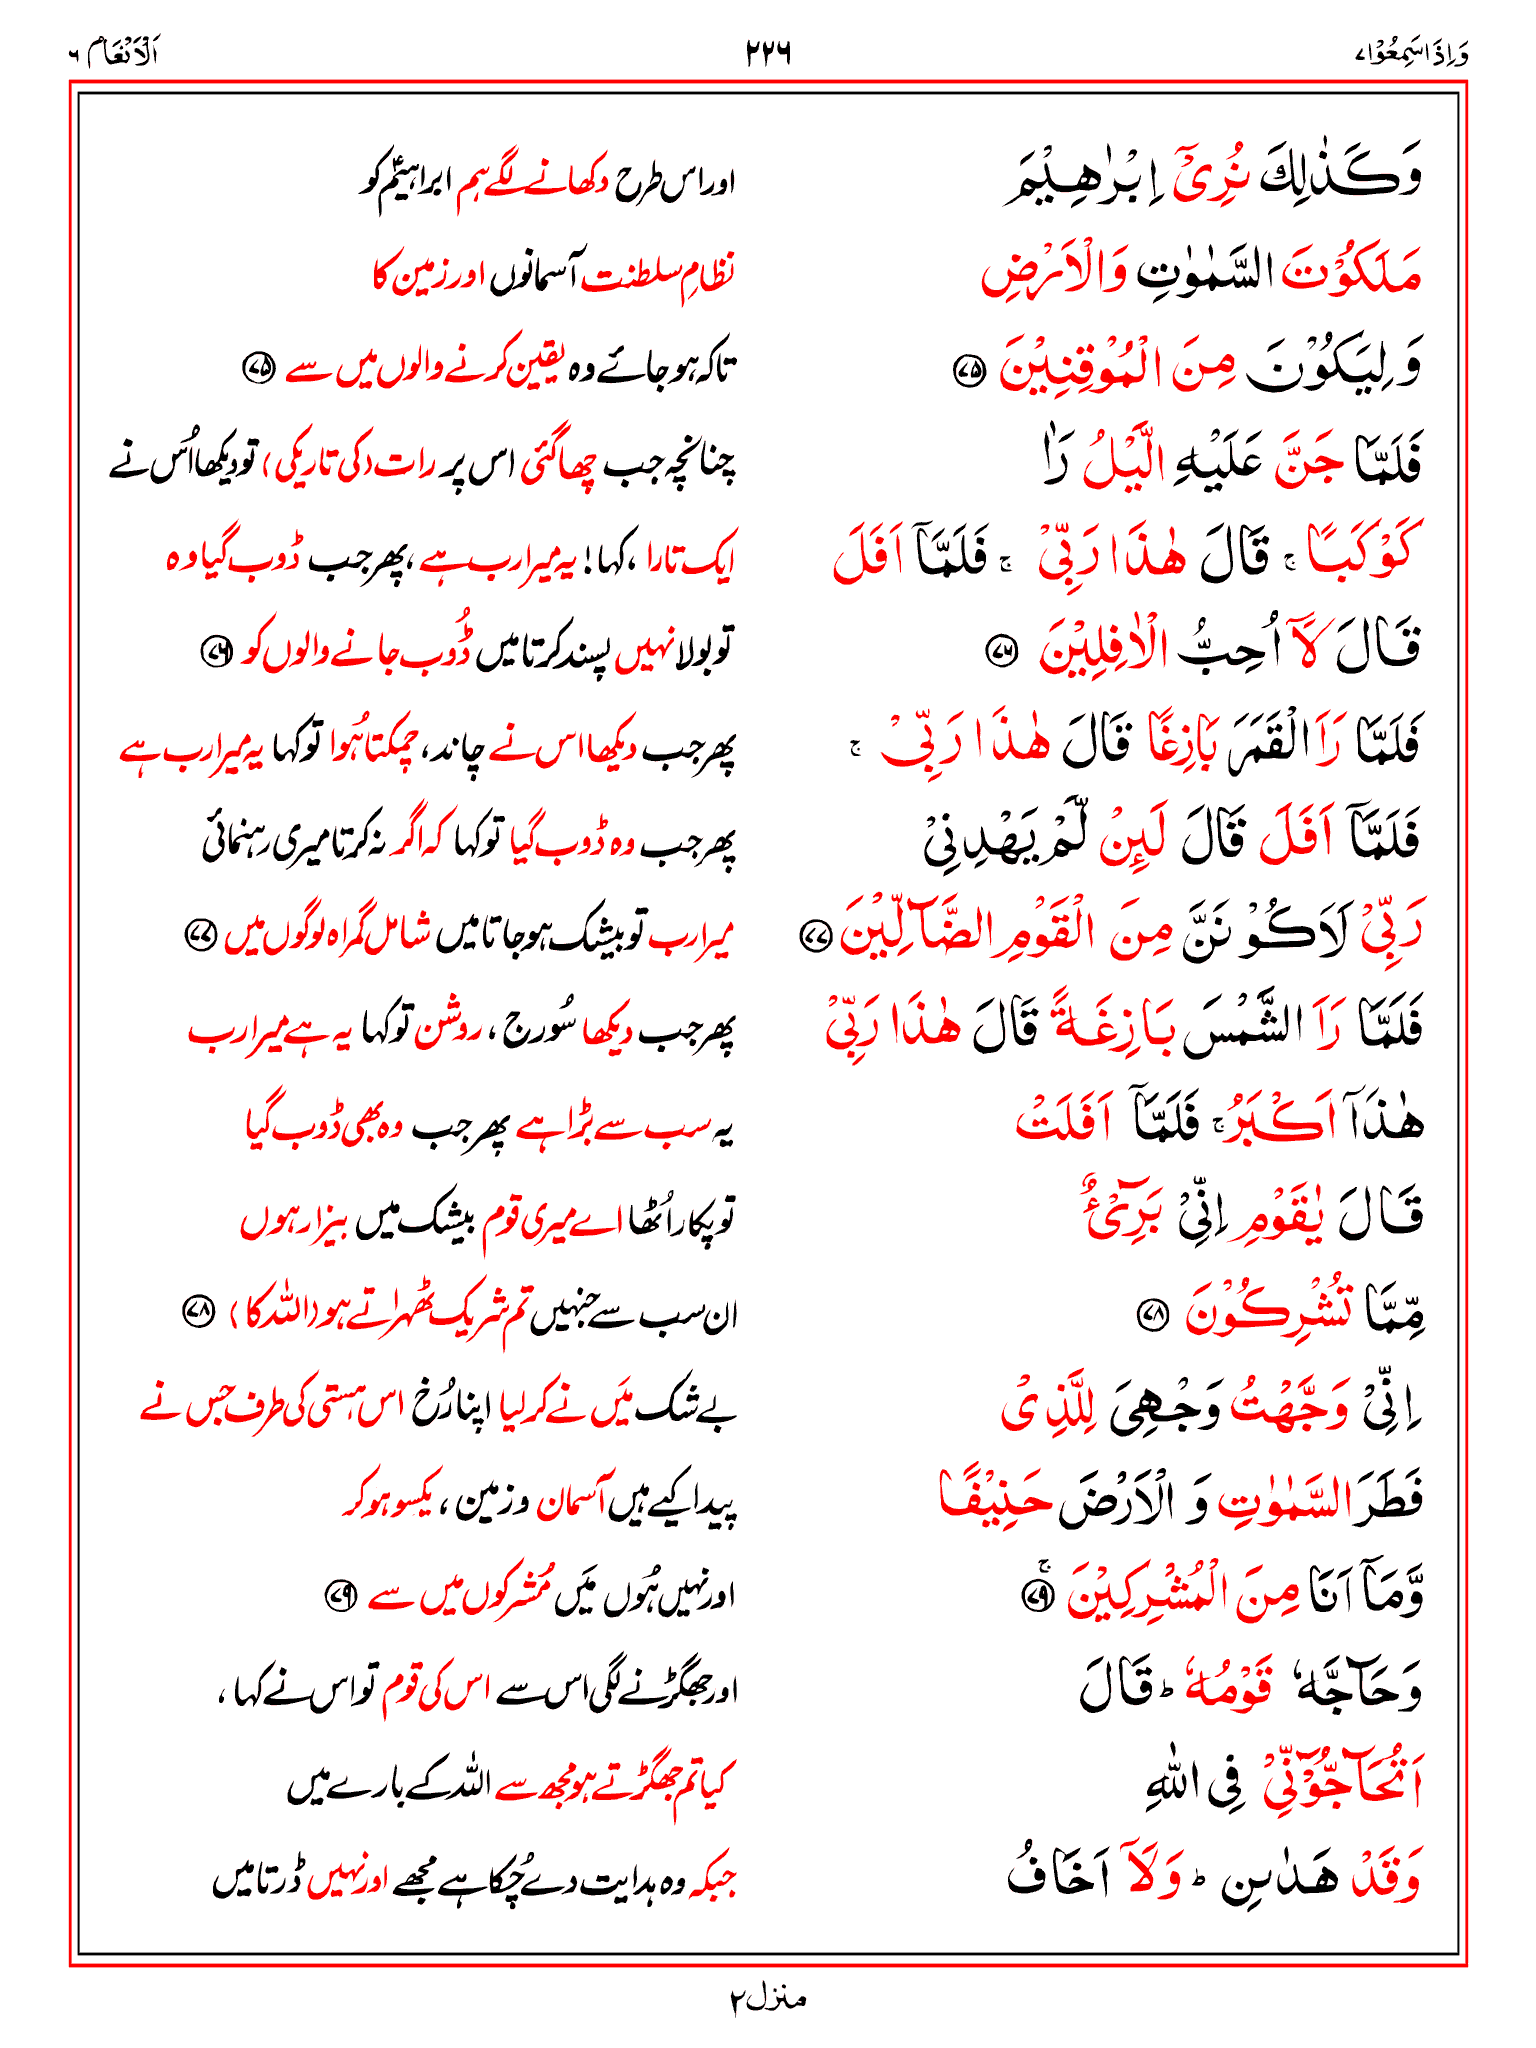 وَاِذَا سَمِعُوْا ۷ ۲۲۶ اَلْاَنْعَام ۶
وَكَذٰلِكَ نُرِیْۤ اِبْرٰهِیْمَ اور اس طرح دکھانے لگے ہم ابراہیمؑ کو
مَلَكُوْتَ السَّمٰوٰتِ وَالْاَرْضِ نظامِ سلطنت آسمانوں اور زمین کا
وَلِیَكُوْنَ مِنَ الْمُوْقِنِیْنَ ۷۵ تاکہ ہو جائے وہ یقین کرنے والوں میں سے ۷۵
فَلَمَّا جَنَّ عَلَیْهِ الَّیْلُ رَاٰ چنانچہ جب چھا گئی اس پر رات (کی تاریکی) تو دیکھا اُس نے
كَوْكَبًا ۚ قَالَ هٰذَا رَبِّیْ ۚ فَلَمَّاۤ اَفَلَ ایک تارا، کہا! یہ میرا رب ہے، پھر جب ڈوب گیا وہ
قَالَ لَاۤ اُحِبُّ الْاٰفِلِیْنَ ۷۶ تو بولا نہیں پسند کرتا میں ڈُوب جانے والوں کو ۷۶
فَلَمَّا رَاَ الْقَمَرَ بَازِغًا قَالَ هٰذَا رَبِّیْ ۚ پھر جب دیکھا اس نے چاند، چمکتا ہُوا تو کہا یہ میرا رب ہے
فَلَمَّاۤ اَفَلَ قَالَ لَىِٕنْ لَّمْ یَهْدِنِیْ پھر جب وہ ڈوب گیا تو کہا کہ اگر نہ کرتا میری رہنمائی
رَبِّیْ لَاَكُوْنَنَّ مِنَ الْقَوْمِ الضَّآلِّیْنَ ۷۷ میرا رب تو بیشک ہو جاتا میں شامل گمراہ لوگوں میں ۷۷
فَلَمَّا رَاَ الشَّمْسَ بَازِغَةً قَالَ هٰذَا رَبِّیْ پھر جب دیکھا سُورج، روشن تو کہا یہ ہے میرا رب
هٰذَاۤ اَكْبَرُ ۚ فَلَمَّاۤ اَفَلَتْ یہ سب سے بڑا ہے پھر جب وہ بھی ڈوب گیا
قَالَ یٰقَوْمِ اِنِّیْ بَرِیْٓءٌ تو پکار اُٹھا اے میری قوم بیشک میں بیزار ہوں
مِّمَّا تُشْرِكُوْنَ ۷۸ ان سب سے جنہیں تم شریک ٹھہراتے ہو (اللہ کا) ۷۸
اِنِّیْ وَجَّهْتُ وَجْهِیَ لِلَّذِیْ بے شک میَں نے کر لیا اپنا رُخ اس ہستی کی طرف جس نے
فَطَرَ السَّمٰوٰتِ وَ الْاَرْضَ حَنِیْفًا پیدا کیے ہیں آسمان و زمین، یکسو ہو کر
وَّمَاۤ اَنَا مِنَ الْمُشْرِكِیْنَ ۷۹ ۚ اور نہیں ہُوں میَں مُشرکوں میں سے ۷۹
وَحَآجَّهٗ قَوْمُهٗ ؕ قَالَ اور جھگڑنے لگی اس سے اس کی قوم تو اس نے کہا،
اَتُحَآجُّوْٓنِّیْ فِی اللّٰهِ کیا تم جھگڑتے ہو مجھ سے اللہ کے بارے میں
وَقَدْ هَدٰىنِ ؕ وَلَاۤ اَخَافُ جبکہ وہ ہدایت دے چُکا ہے مجھے اور نہیں ڈرتا میں
منزل ۲